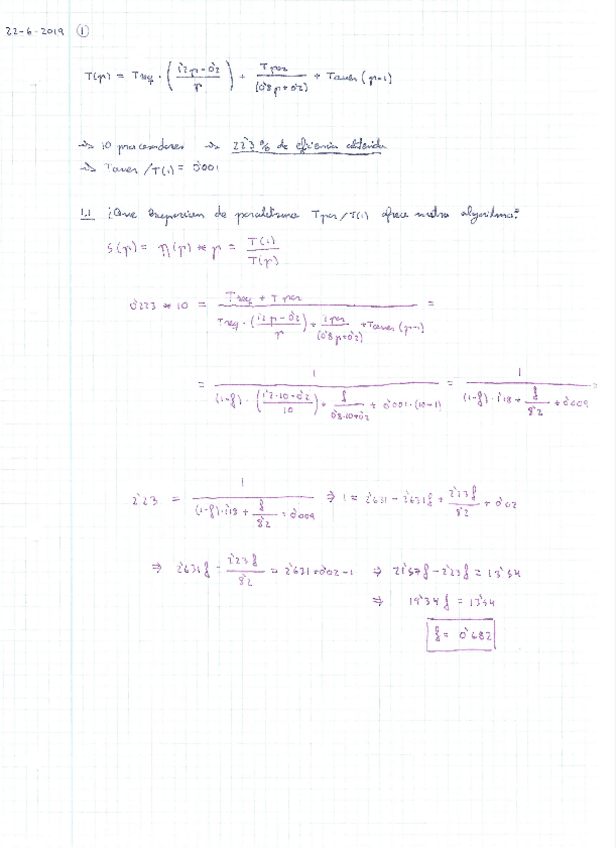 22-6-2019 ①
T(p) = Tseq · ( (1'2p - 0'2) / p ) + Tpar / (0'8p + 0'2) + Tover (p-1)
→ 10 procesadores → 22'3% de eficiencia obtenida
→ Tover / T(1) = 0'001
1.1 ¿Que proporcion de paralelismo Tpar/T(1) ofrece nuestro algoritmo?
S(p) = η(p) * p = T(1) / T(p)
0'223 * 10 = (Tseq + Tpar) / ( Tseq · ( (1'2p - 0'2) / p ) + Tpar / (0'8p + 0'2) + Tover (p-1) ) =
= 1 / ( (1-f) · ( (1'2·10 - 0'2) / 10 ) + f / (0'8·10 + 0'2) + 0'001·(10-1) ) = 1 / ( (1-f)·1'18 + f / 8'2 + 0'009 )
2'23 = 1 / ( (1-f)·1'18 + f / 8'2 + 0'009 ) ⇒ 1 = 2'631 - 2'631f + 2'23f / 8'2 + 0'02
⇒ 2'631f - 2'23f / 8'2 = 2'631 + 0'02 - 1 ⇒ 21'57f - 2'23f = 13'54
⇒ 19'34f = 13'54
f = 0'682